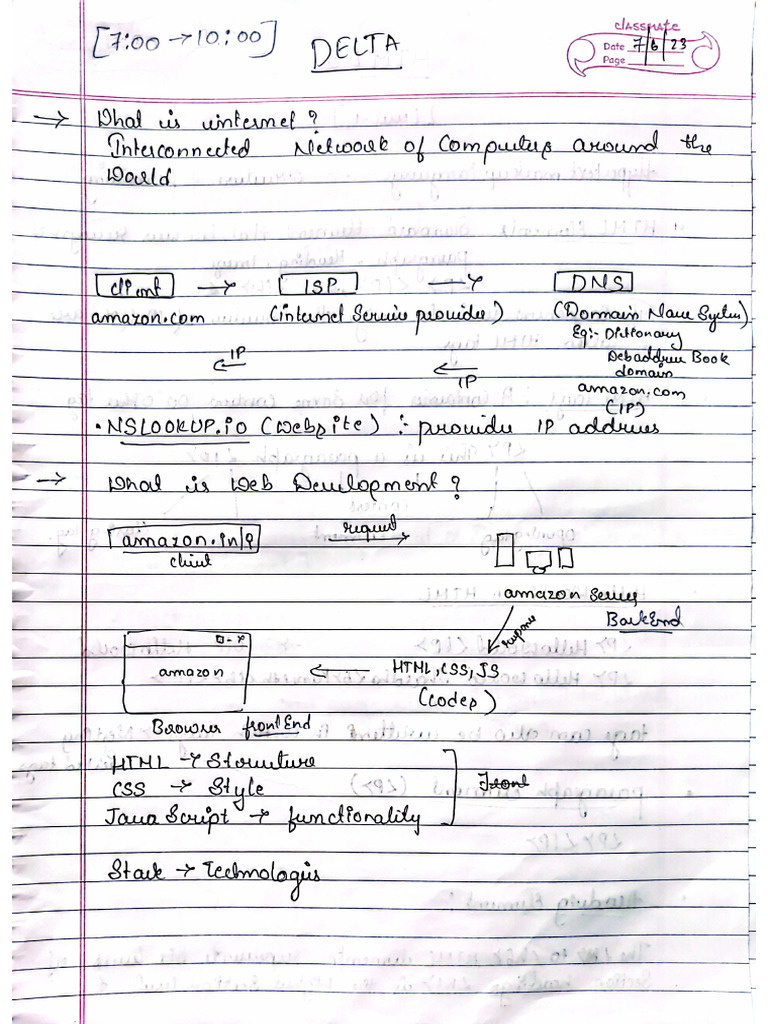 [7:00 → 10:00]
DELTA
classmate
Date 7/6/23
Page
→ What is internet?
Interconnected Network of Computers around the
World
client → ISP → DNS
amazon.com (internet Service provider) (Domain Name System)
Eg:- Dictionary
← IP ← IP
Book
domain
amazon.com
(IP)
• NSLOOKUP.io (Website) :- provides IP address
→ What is Web Development?
amazon.in/ request →
client
amazon Server
response
BackEnd
amazon ← HTML, CSS, JS
(codes)
Browser frontEnd
HTML → Structure
CSS → Style
Front
Java Script → functionality
Stack → Technologies